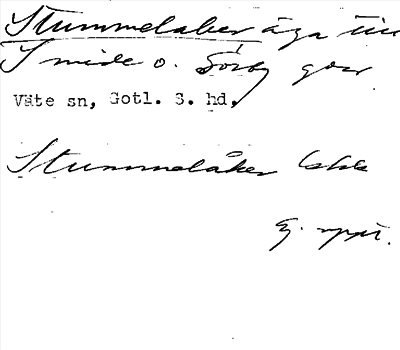 Stummelaker äga till
Smide o. Sörby går
Väte sn, Gotl. S. hd,
Stummelåker
Ej uppt.